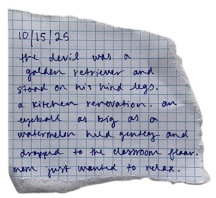 10/15/25
the devil was a
golden retriever and
stood on his hind legs.
a kitchen renovation. an
eyeball as big as a
watermelon held gently and
dropped to the classroom floor.
mom just wanted to relax.